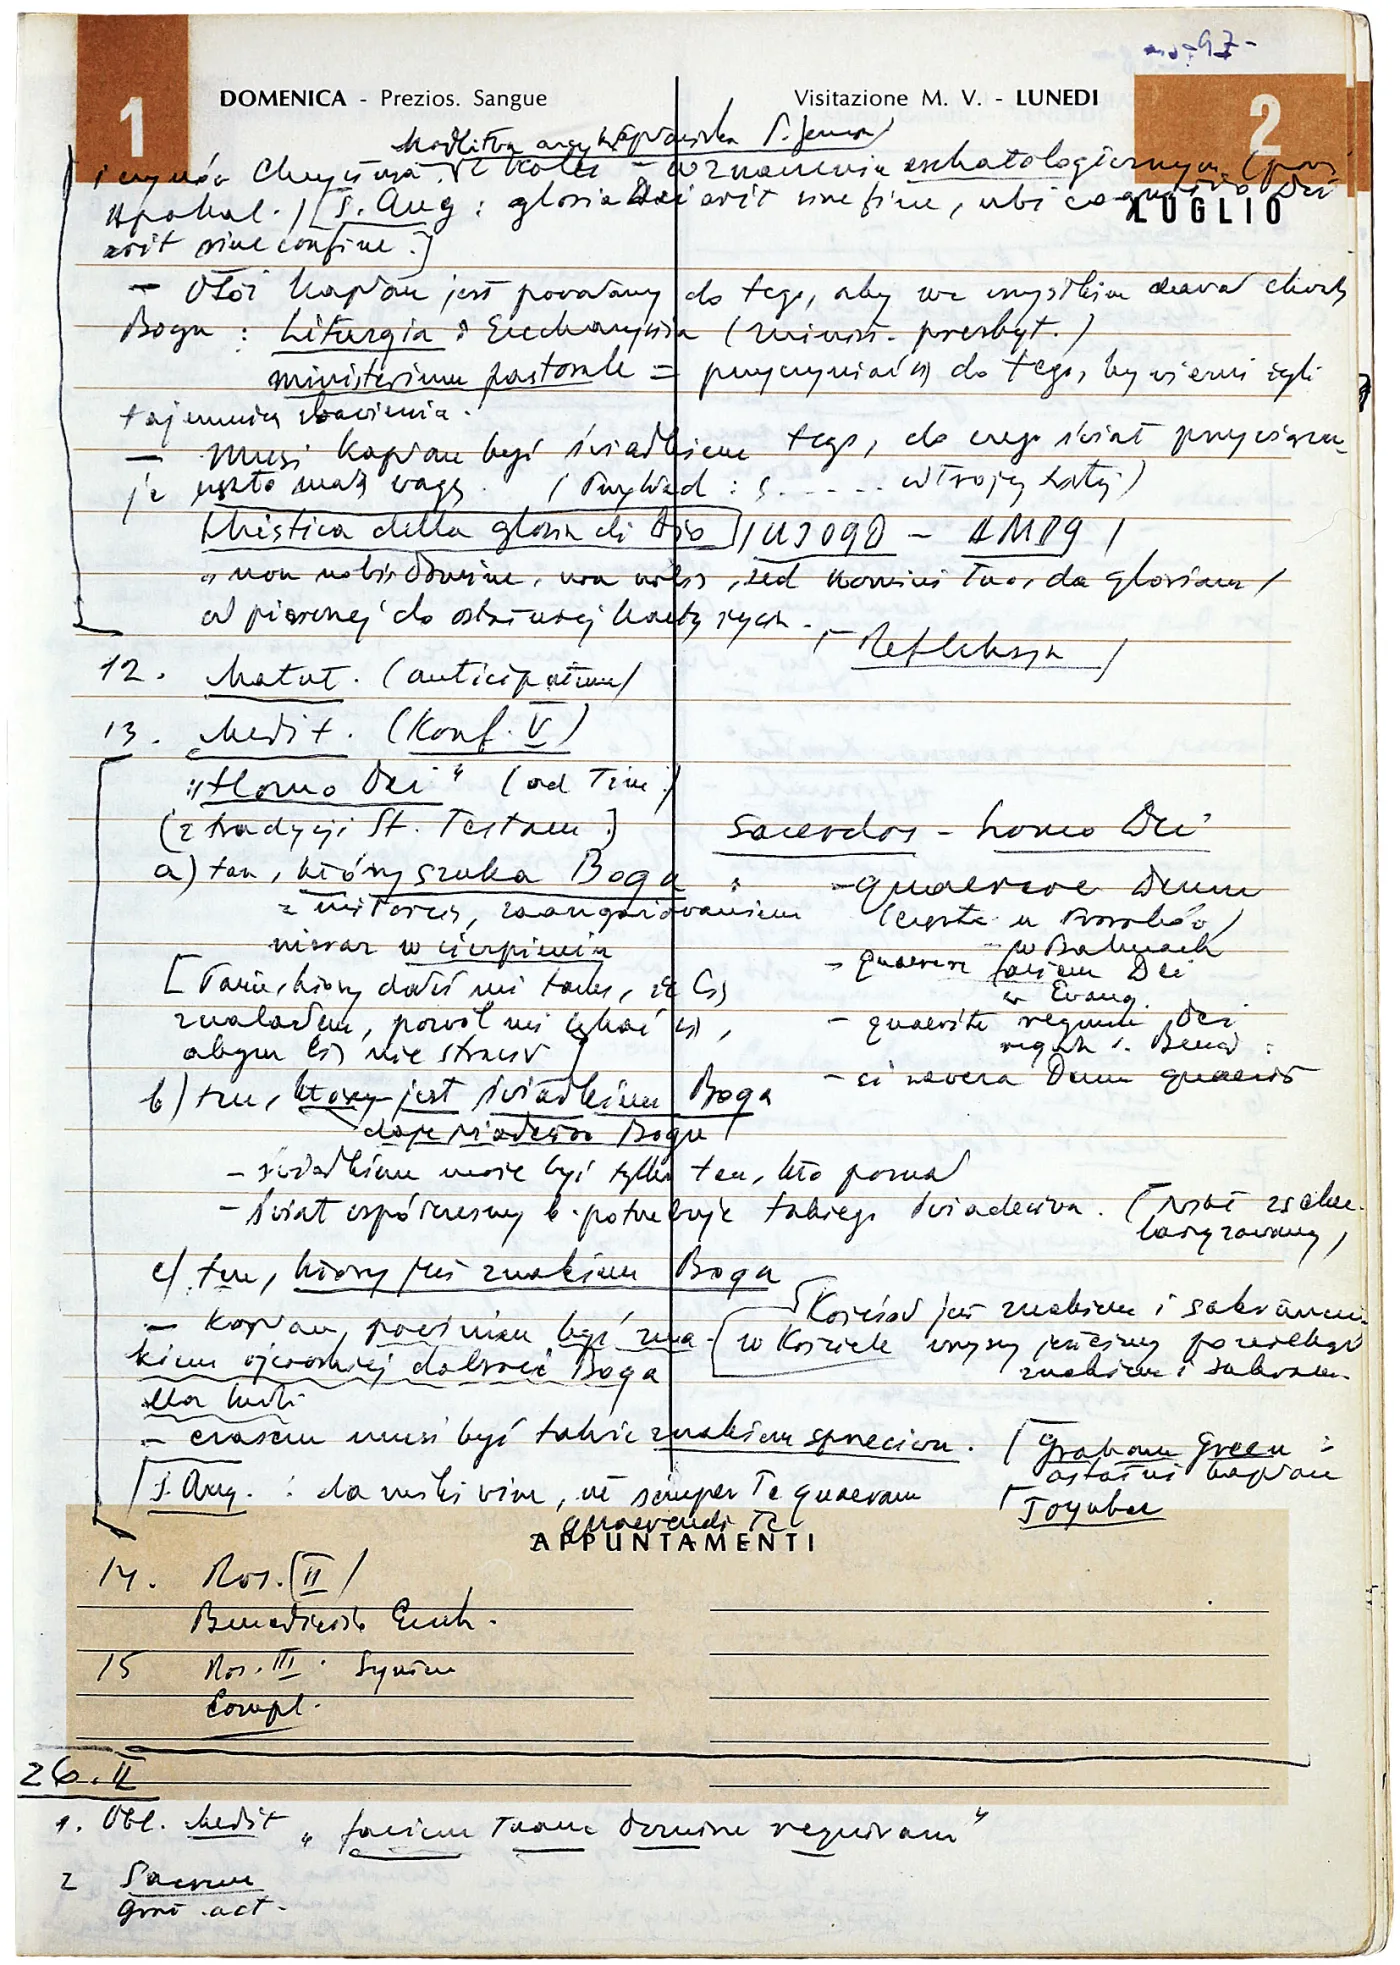 - 97 -
1 DOMENICA - Prezios. Sangue
Visitazione M. V. - LUNEDI 2
LUGLIO
Modlitwa arcykapłańska P. Jezusa
i czynów Chrystusa w znaczeniu eschatologicznym (por.
Apokal.) [S. Aug: gloria Dei erit sine fine, ubi cognitio Dei
erit sine confine.]
– Otóż kapłan jest powołany do tego, aby we wszystkim dawał chwałę
Bogu: Liturgia i Eucharystia ( presbyt.)
ministerium pastorale = przyczyniać się do tego, by wierni żyli
tajemnicą zbawienia.
– Musi kapłan być świadkiem tego, do czego świat przywiązu-
je zwykle małą wagę. (Przykład: S. . . . . w Trojcy )
Mistica della gloria di Dio (UIOGD – AMDG)
„non nobis Domine, non nobis, sed nomini Tuo da gloriam)
od pierwszej do ostatniej karty
(– Refleksja)
12. Matut. (anticipatum)
13. Medit. (Konf. V)
„Homo Dei" (ad Tim.)
(z tradycji St. Testam.)
Sacerdos – homo Dei
a) ten, który szuka Boga :
z miłością, zaangażowaniem
nieraz w cierpieniu
[Panie, który dałeś mi łaskę, że Cię
znalazłem, pozwól mi szukać Cię,
abym Cię nie stracił]
– quaerere Deum
(częste u Proroków)
– w Psalmach
– quaerere faciem Dei
w Ewang.
– quaerite regnum Dei
reguła s. Bened:
– si revera Deum quaerit
b) ten, który jest świadkiem Boga
daje świadectwo Bogu
– świadkiem może być tylko ten, kto poznał
– świat współczesny b. potrzebuje takiego świadectwa. (świat zseku-
laryzowany)
c) ten, który jest znakiem Boga
– kapłan powinien być zna-
kiem ojcowskiej dobroci Boga
dla ludzi
[Kościół jest znakiem i sakramen.
w Kościele wszyscy jesteśmy powołani
znakiem i sakram.
– czasem musi być także znakiem sprzeciwu.
[Graham Green:
ostatni kapłan
[Toynbee
[S. Aug.: da mihi vim, ut semper Te quaeram
quaerendi Te
APPUNTAMENTI
14. Ros. (II)
Benedictio Euch.
15 Ros. III.
Compl.
26.II
1. Obl. Medit „faciem Tuam Domine requiram"
2 Sacrum
Grat. act.